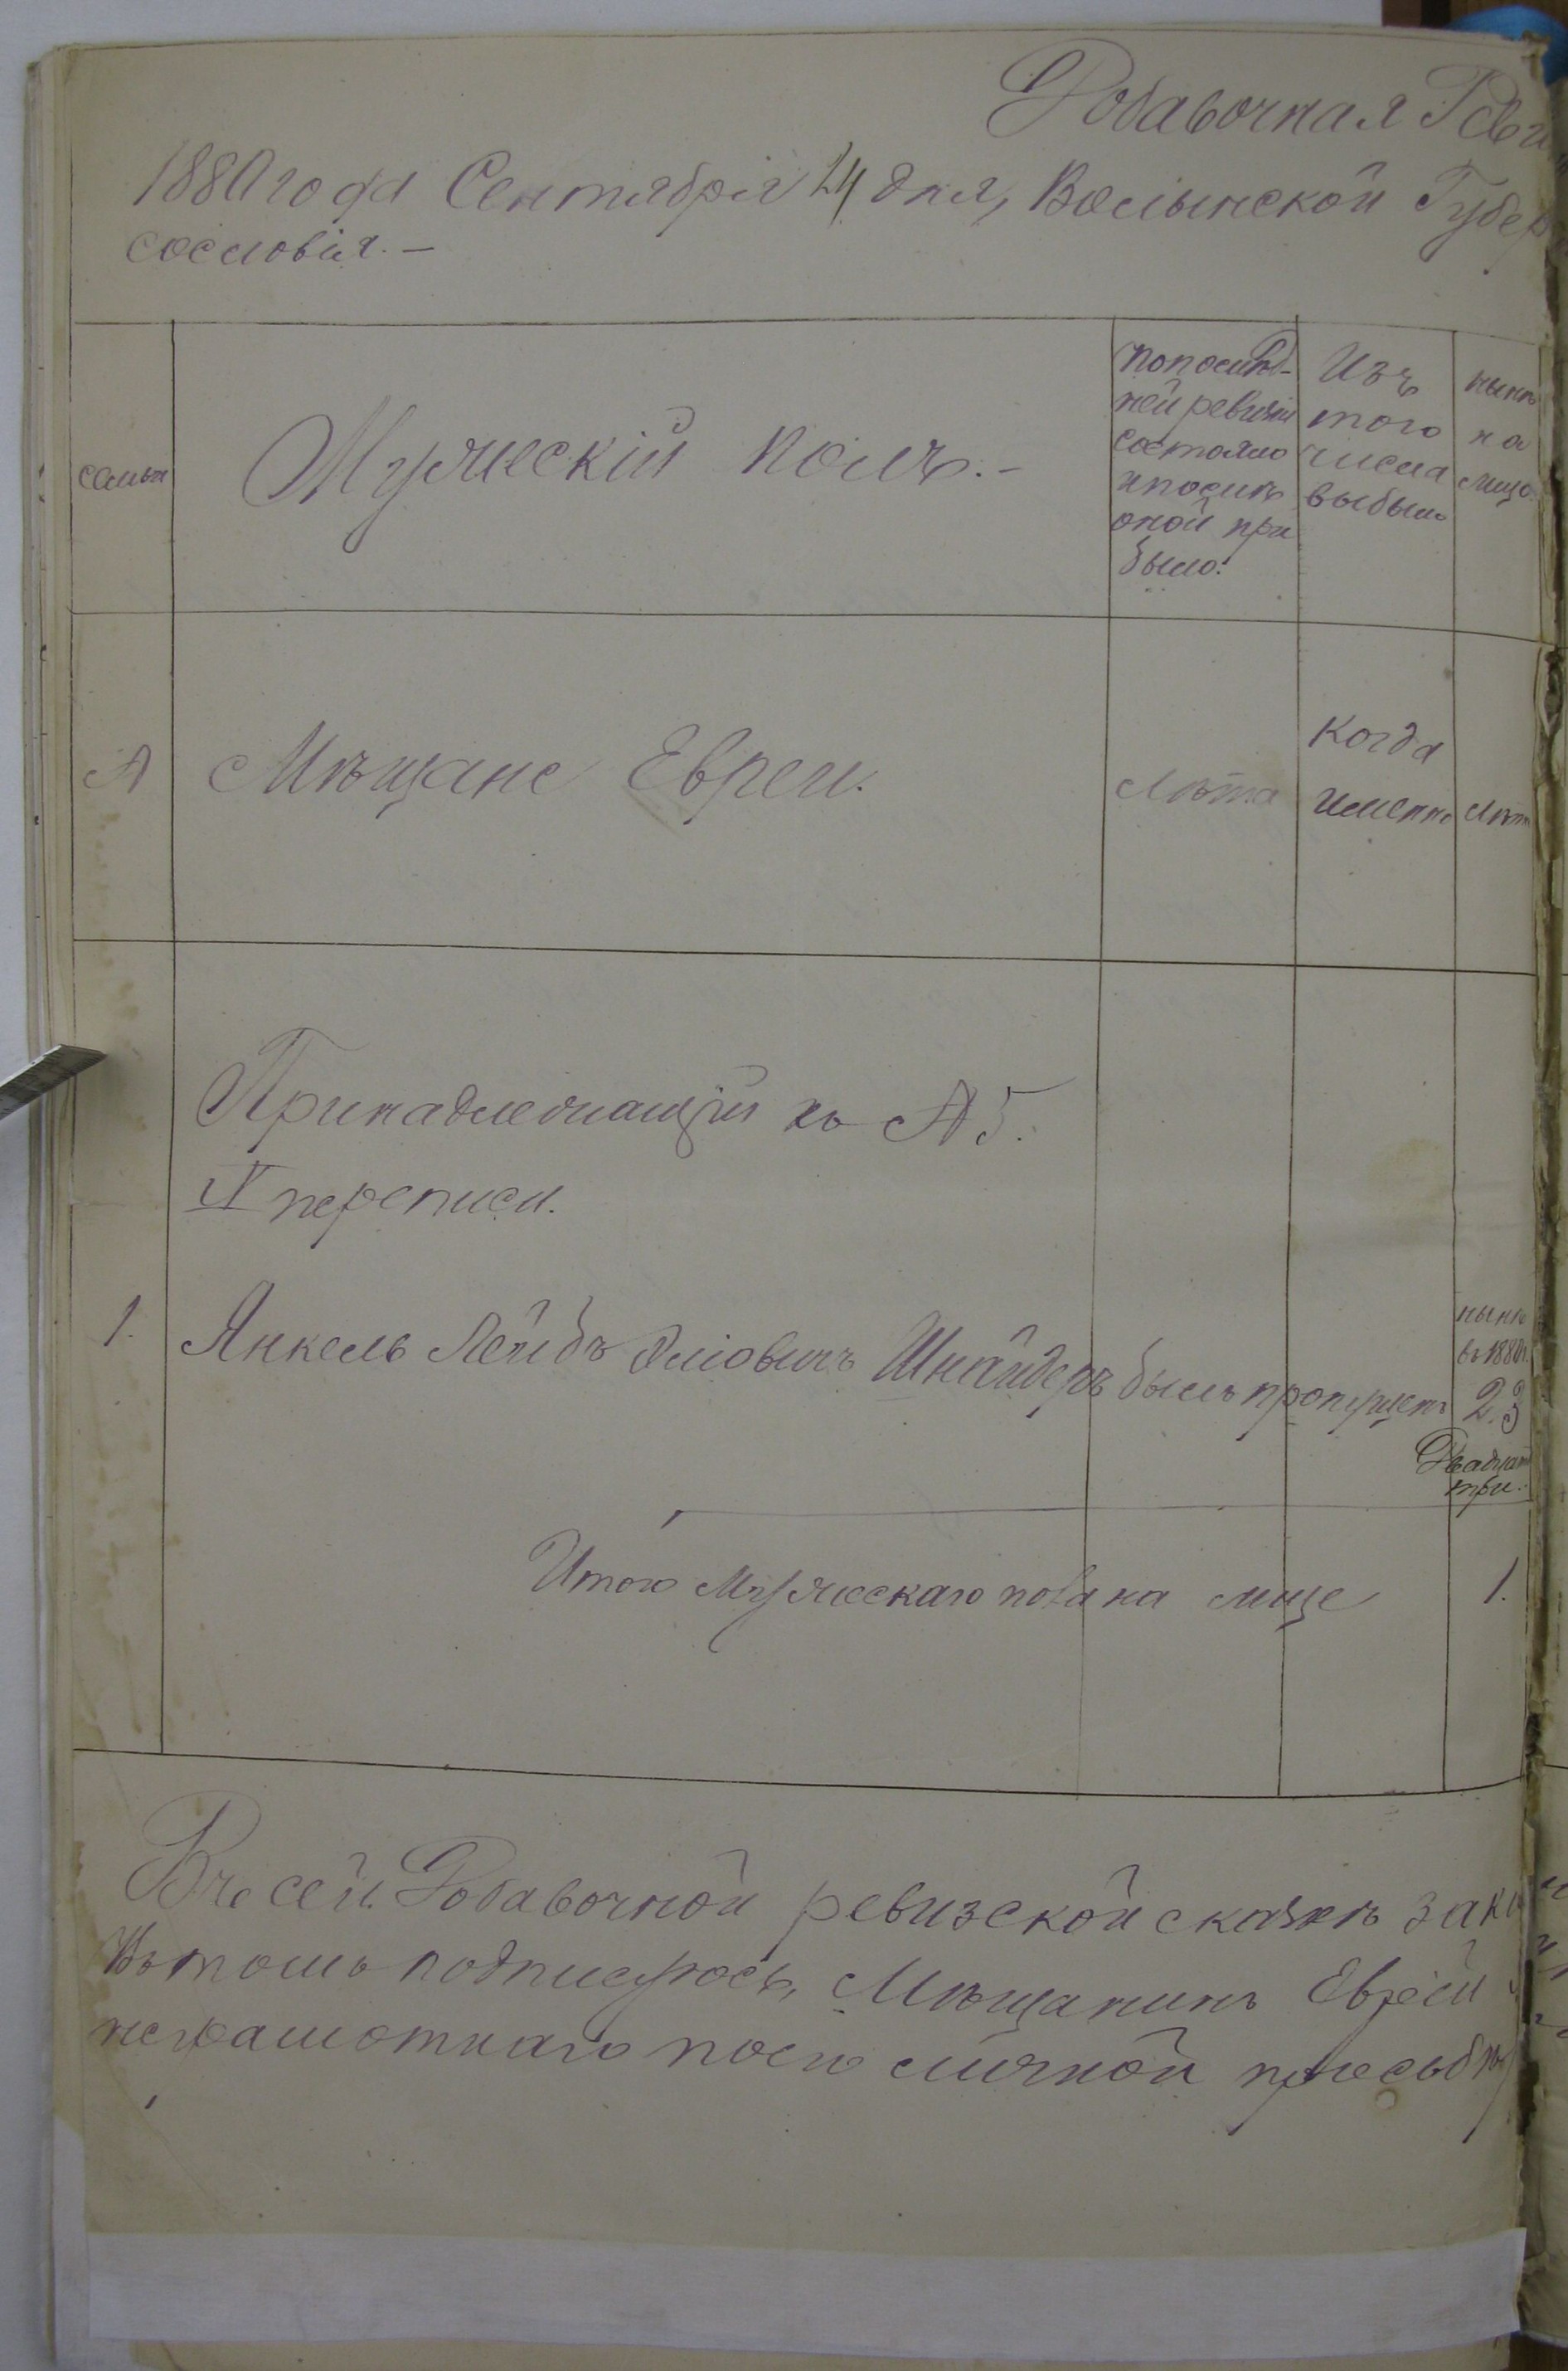 Добавочная Реви
1880 года Сентября 24 дня, Волынской Губер
сословія. —
семьи
Мужескій полъ. —
по послѣд-
ней ревизіи
состояло
и послѣ
оной при
было.
Изъ
того
числа
выбыло
нынѣ
на
лицо
№
Мѣщане Евреи.
Лѣта
Когда
именно
Лѣта
Принадлежащій къ № 5.
X переписи.
1.
Янкель Лейбъ Эліовичъ Шнайдеръ былъ пропущенъ
нынѣ
въ 1880 г.
23
Двадцать
три.
Итого Мужескаго пола на лице
1.
Въ сей Добавочной ревизской сказкѣ
Въ томъ подписуюсь, Мѣщанинъ Еврей
неграмотнаго по его личной просьбѣ